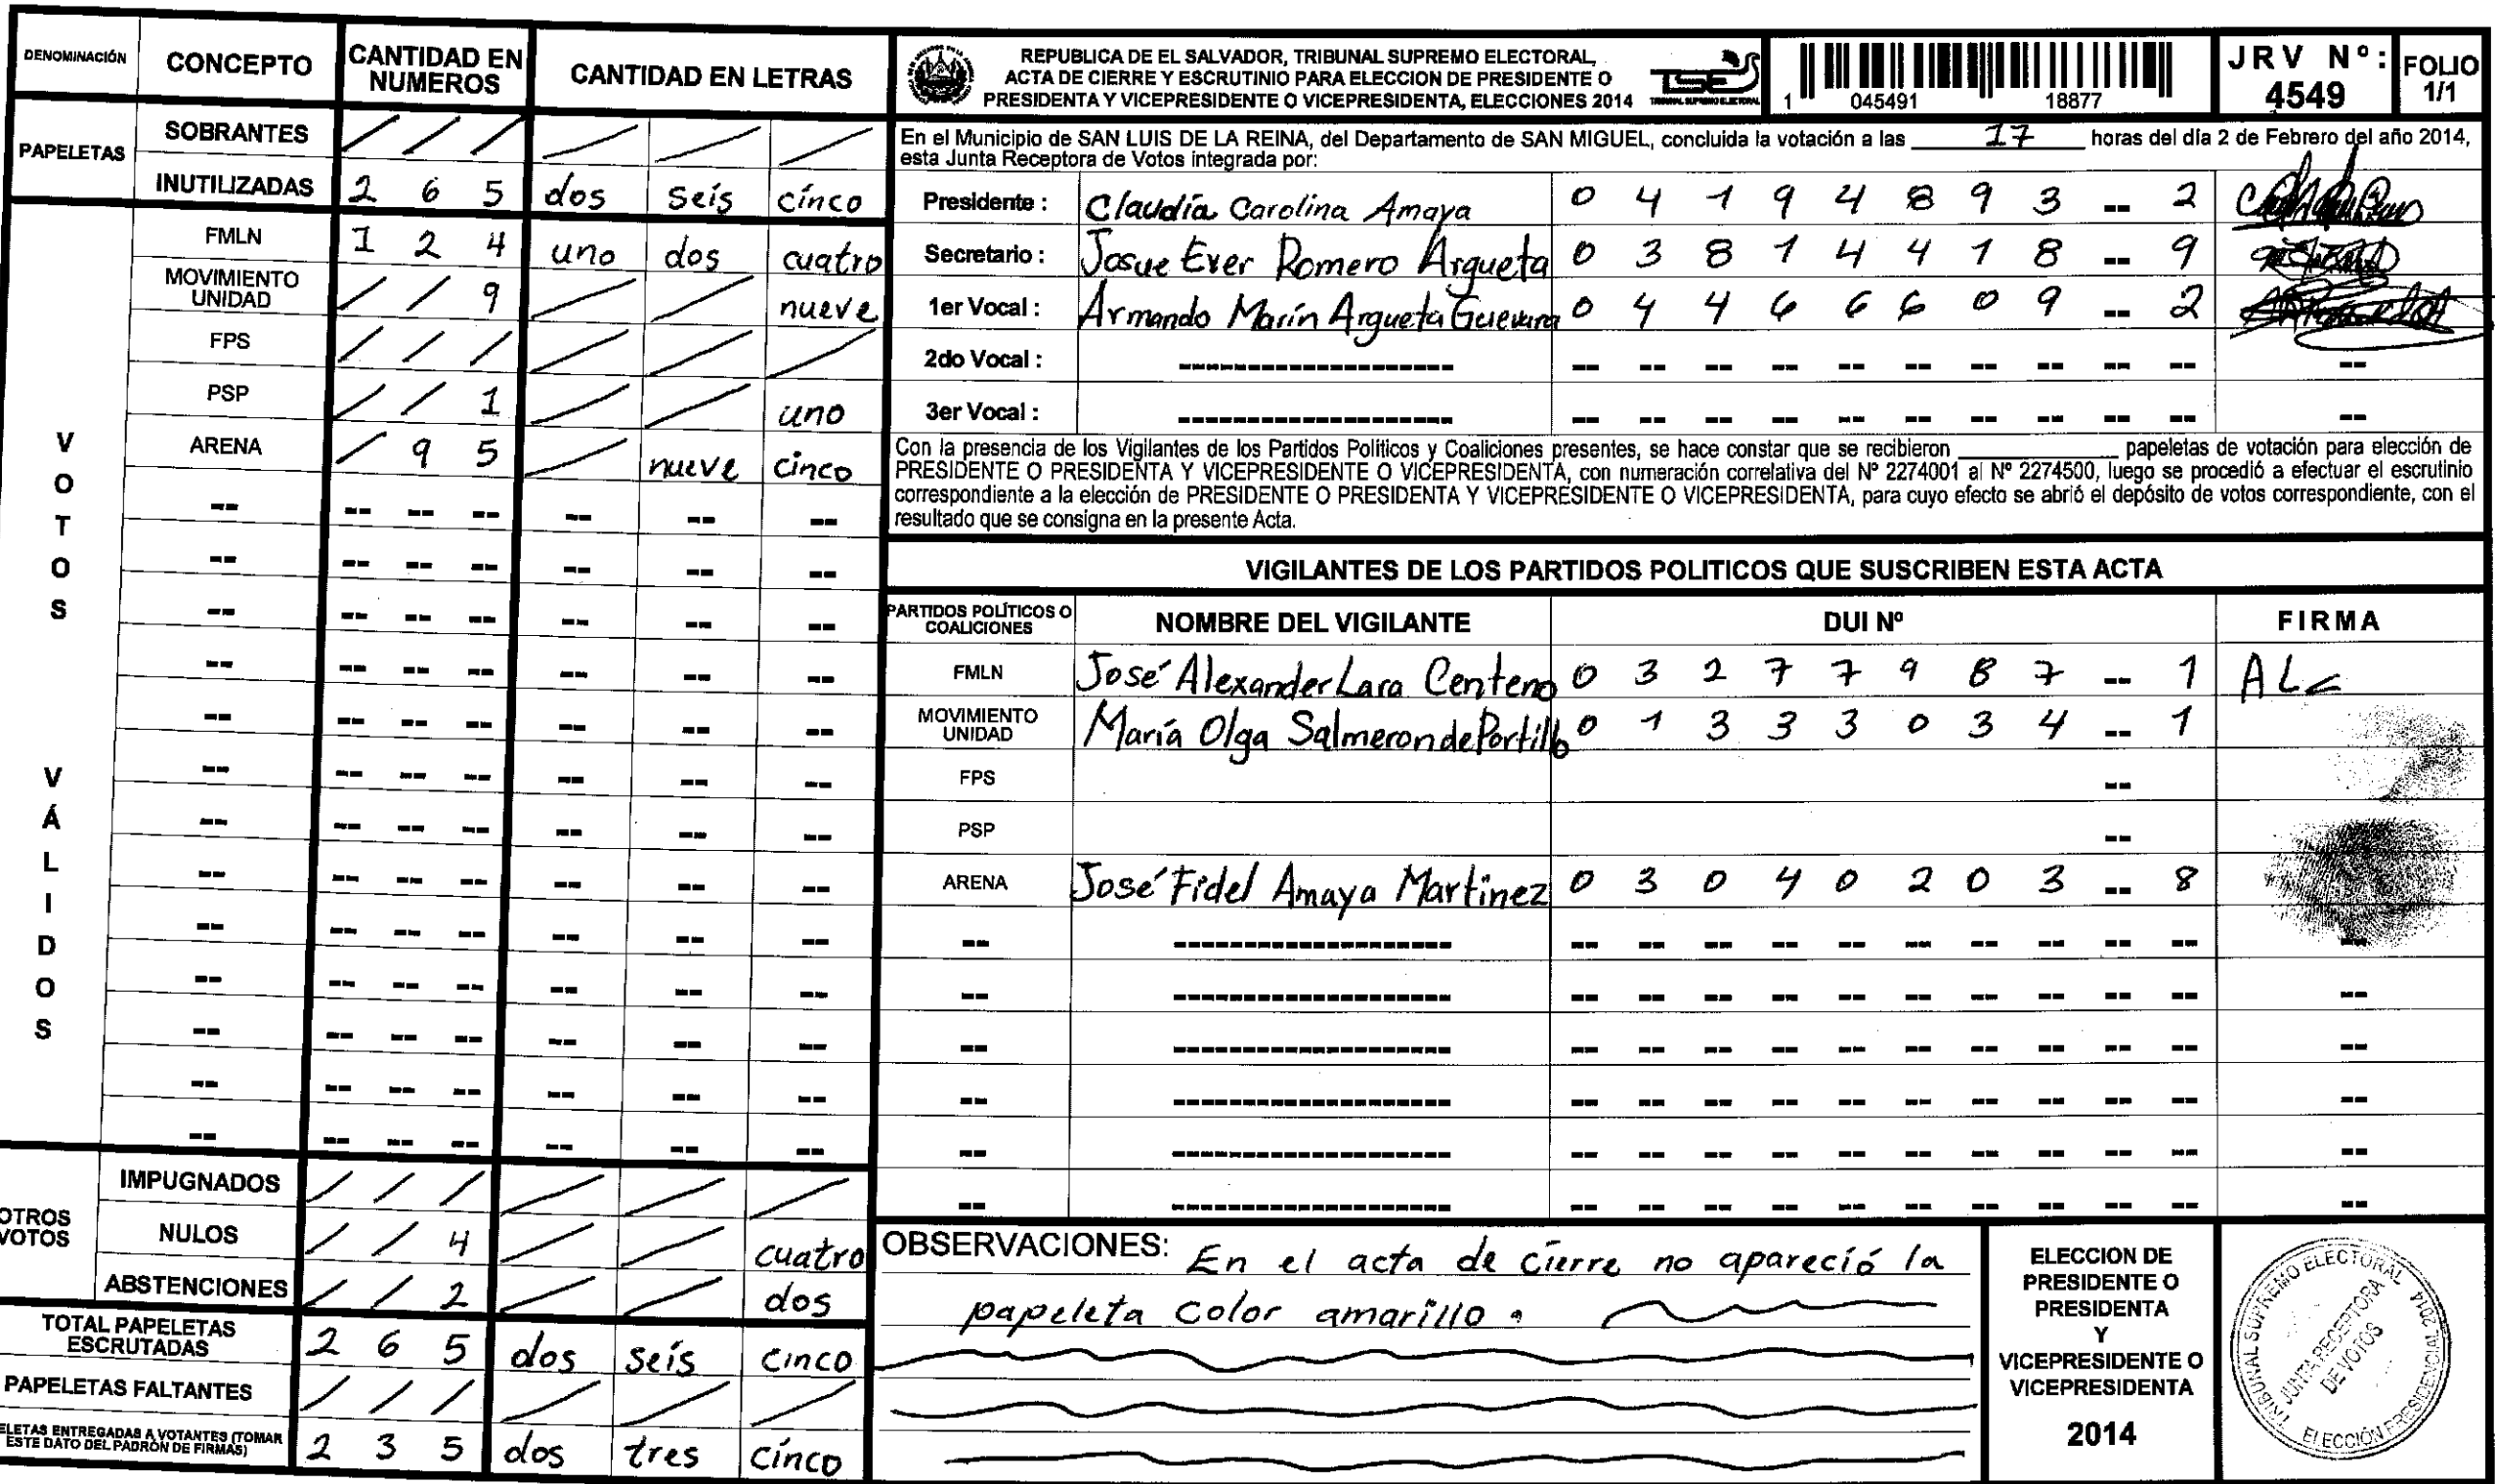 DENOMINACIÓN CONCEPTO CANTIDAD EN NUMEROS CANTIDAD EN LETRAS
PAPELETAS
SOBRANTES / / / / / /
INUTILIZADAS 2 6 5 dos seis cinco
VOTOS VÁLIDOS
FMLN 1 2 4 uno dos cuatro
MOVIMIENTO UNIDAD / / 9 / / nueve
FPS / / / / / /
PSP / / 1 / / uno
ARENA / 9 5 / nueve cinco
-- -- -- -- -- -- --
-- -- -- -- -- -- --
-- -- -- -- -- -- --
-- -- -- -- -- -- --
-- -- -- -- -- -- --
-- -- -- -- -- -- --
-- -- -- -- -- -- --
-- -- -- -- -- -- --
-- -- -- -- -- -- --
-- -- -- -- -- -- --
-- -- -- -- -- -- --
-- -- -- -- -- -- --
-- -- -- -- -- -- --
OTROS VOTOS
IMPUGNADOS / / / / / /
NULOS / / 4 / / cuatro
ABSTENCIONES / / 2 / / dos
TOTAL PAPELETAS ESCRUTADAS 2 6 5 dos seis cinco
PAPELETAS FALTANTES / / / / / /
ELETAS ENTREGADAS A VOTANTES (TOMAR
ESTE DATO DEL PADRÓN DE FIRMAS) 2 3 5 dos tres cinco
REPUBLICA DE EL SALVADOR, TRIBUNAL SUPREMO ELECTORAL,
ACTA DE CIERRE Y ESCRUTINIO PARA ELECCION DE PRESIDENTE O
PRESIDENTA Y VICEPRESIDENTE O VICEPRESIDENTA, ELECCIONES 2014
TSE
TRIBUNAL SUPREMO ELECTORAL
1 045491 18877
JRV Nº: 4549
FOLIO 1/1
En el Municipio de SAN LUIS DE LA REINA, del Departamento de SAN MIGUEL, concluida la votación a las 17 horas del día 2 de Febrero del año 2014,
esta Junta Receptora de Votos integrada por:
Presidente : Claudía Carolina Amaya 0 4 1 9 4 8 9 3 -- 2
Secretario : Josue Ever Romero Argueta 0 3 8 1 4 4 1 8 -- 9
1er Vocal : Armando Marín Argueta Guevara 0 4 4 6 6 6 0 9 -- 2
2do Vocal : ------------------ -- -- -- -- -- -- -- -- -- -- --
3er Vocal : ------------------ -- -- -- -- -- -- -- -- -- -- --
Con la presencia de los Vigilantes de los Partidos Políticos y Coaliciones presentes, se hace constar que se recibieron ________ papeletas de votación para elección de
PRESIDENTE O PRESIDENTA Y VICEPRESIDENTE O VICEPRESIDENTA, con numeración correlativa del Nº 2274001 al Nº 2274500, luego se procedió a efectuar el escrutinio
correspondiente a la elección de PRESIDENTE O PRESIDENTA Y VICEPRESIDENTE O VICEPRESIDENTA, para cuyo efecto se abrió el depósito de votos correspondiente, con el
resultado que se consigna en la presente Acta.
VIGILANTES DE LOS PARTIDOS POLITICOS QUE SUSCRIBEN ESTA ACTA
PARTIDOS POLÍTICOS O COALICIONES NOMBRE DEL VIGILANTE DUI Nº FIRMA
FMLN José Alexander Lara Centeno 0 3 2 7 7 9 8 7 -- 1 ALc
MOVIMIENTO UNIDAD María Olga Salmeron de Portillo 0 1 3 3 3 0 3 4 -- 1
FPS --
PSP --
ARENA José Fidel Amaya Martinez 0 3 0 4 0 2 0 3 -- 8
-- ------------------ -- -- -- -- -- -- -- -- -- -- --
-- ------------------ -- -- -- -- -- -- -- -- -- -- --
-- ------------------ -- -- -- -- -- -- -- -- -- -- --
-- ------------------ -- -- -- -- -- -- -- -- -- -- --
-- ------------------ -- -- -- -- -- -- -- -- -- -- --
-- ------------------ -- -- -- -- -- -- -- -- -- -- --
OBSERVACIONES: En el acta de cierre no apareció la
papeleta color amarillo.
ELECCION DE
PRESIDENTE O
PRESIDENTA
Y
VICEPRESIDENTE O
VICEPRESIDENTA
2014
TRIBUNAL SUPREMO ELECTORAL
JUNTA RECEPTORA
DE VOTOS
ELECCIÓN PRESIDENCIAL 2014